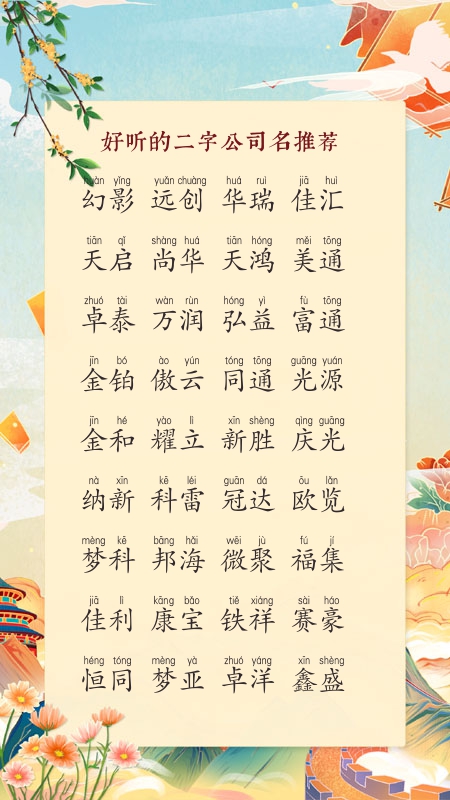 好听的二字公司名推荐
huàn yǐng yuǎn chuàng huá ruì jiā huì
幻影 远创 华瑞 佳汇
tiān qǐ shàng huá tiān hóng měi tōng
天启 尚华 天鸿 美通
zhuó tài wàn rùn hóng yì fù tōng
卓泰 万润 弘益 富通
jīn bó ào yún tóng tōng guāng yuán
金铂 傲云 同通 光源
jīn hé yào lì xīn shèng qìng guāng
金和 耀立 新胜 庆光
nà xīn kē léi guān dá ōu lǎn
纳新 科雷 冠达 欧览
mèng kē bāng hǎi wēi jù fú jí
梦科 邦海 微聚 福集
jiā lì kāng bǎo tiě xiáng sài háo
佳利 康宝 铁祥 赛豪
héng tóng mèng yà zhuó yáng xīn shèng
恒同 梦亚 卓洋 鑫盛